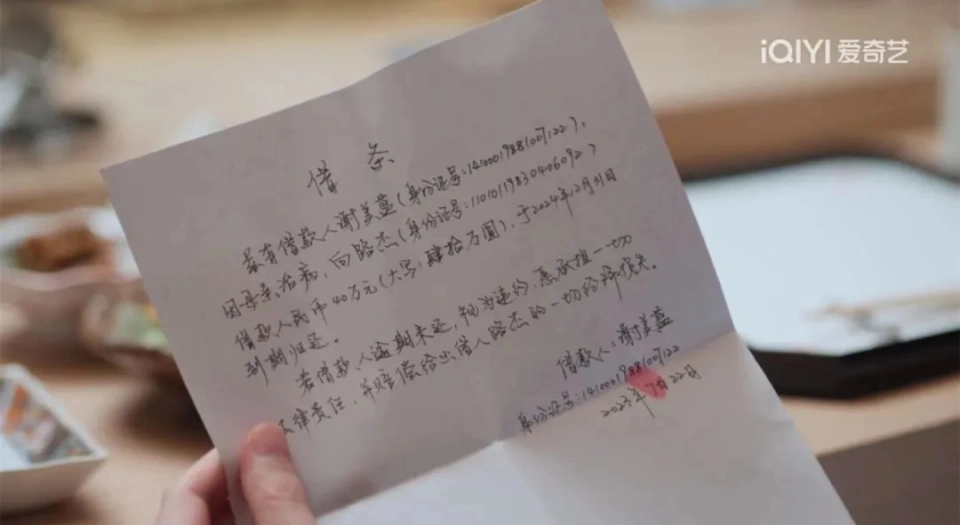 iQIYI 爱奇艺
借条
兹有借款人谢美蓝(身份证号:14100019881007122),
因母亲治病,向路杰(身份证号:11010119830406092)
借款人民币40万元(大写:肆拾万圆),于2024年12月31日
到期归还。
若借款人逾期未还,视为违约,愿承担一切
法律责任,并赔偿给出借人路杰的一切经济损失。
借款人:谢美蓝
身份证号:14100019881007122
2023年7月22日